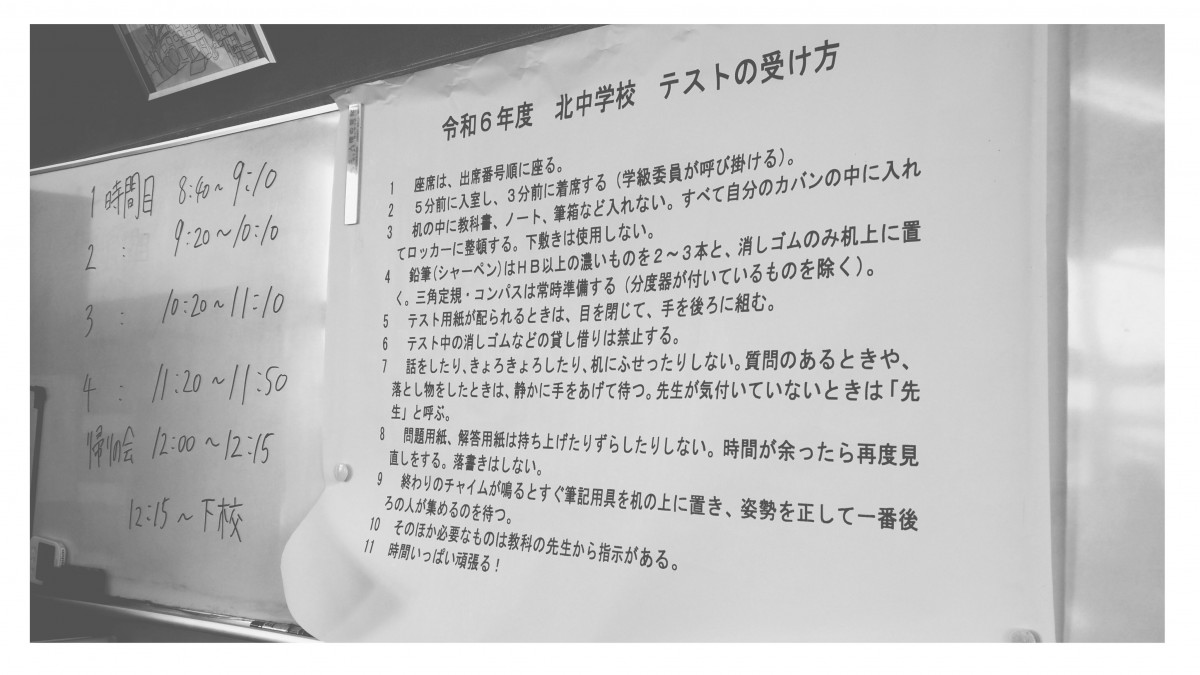 1時間目 8:40～9:10
2 : 9:20～10:10
3 : 10:20～11:10
4 : 11:20～11:50
帰りの会 12:00～12:15
12:15～下校
令和6年度 北中学校 テストの受け方
1 座席は、出席番号順に座る。
2 5分前に入室し、3分前に着席する（学級委員が呼び掛ける）。
3 机の中に教科書、ノート、筆箱など入れない。すべて自分のカバンの中に入れ
てロッカーに整頓する。下敷きは使用しない。
4 鉛筆(シャーペン)はHB以上の濃いものを2～3本と、消しゴムのみ机上に置
く。三角定規・コンパスは常時準備する（分度器が付いているものを除く）。
5 テスト用紙が配られるときは、目を閉じて、手を後ろに組む。
6 テスト中の消しゴムなどの貸し借りは禁止する。
7 話をしたり、きょろきょろしたり、机にふせったりしない。質問のあるときや、
落とし物をしたときは、静かに手をあげて待つ。先生が気付いていないときは「先
生」と呼ぶ。
8 問題用紙、解答用紙は持ち上げたりずらしたりしない。時間が余ったら再度見
直しをする。落書きはしない。
9 終わりのチャイムが鳴るとすぐ筆記用具を机の上に置き、姿勢を正して一番後
ろの人が集めるのを待つ。
10 そのほか必要なものは教科の先生から指示がある。
11 時間いっぱい頑張る！